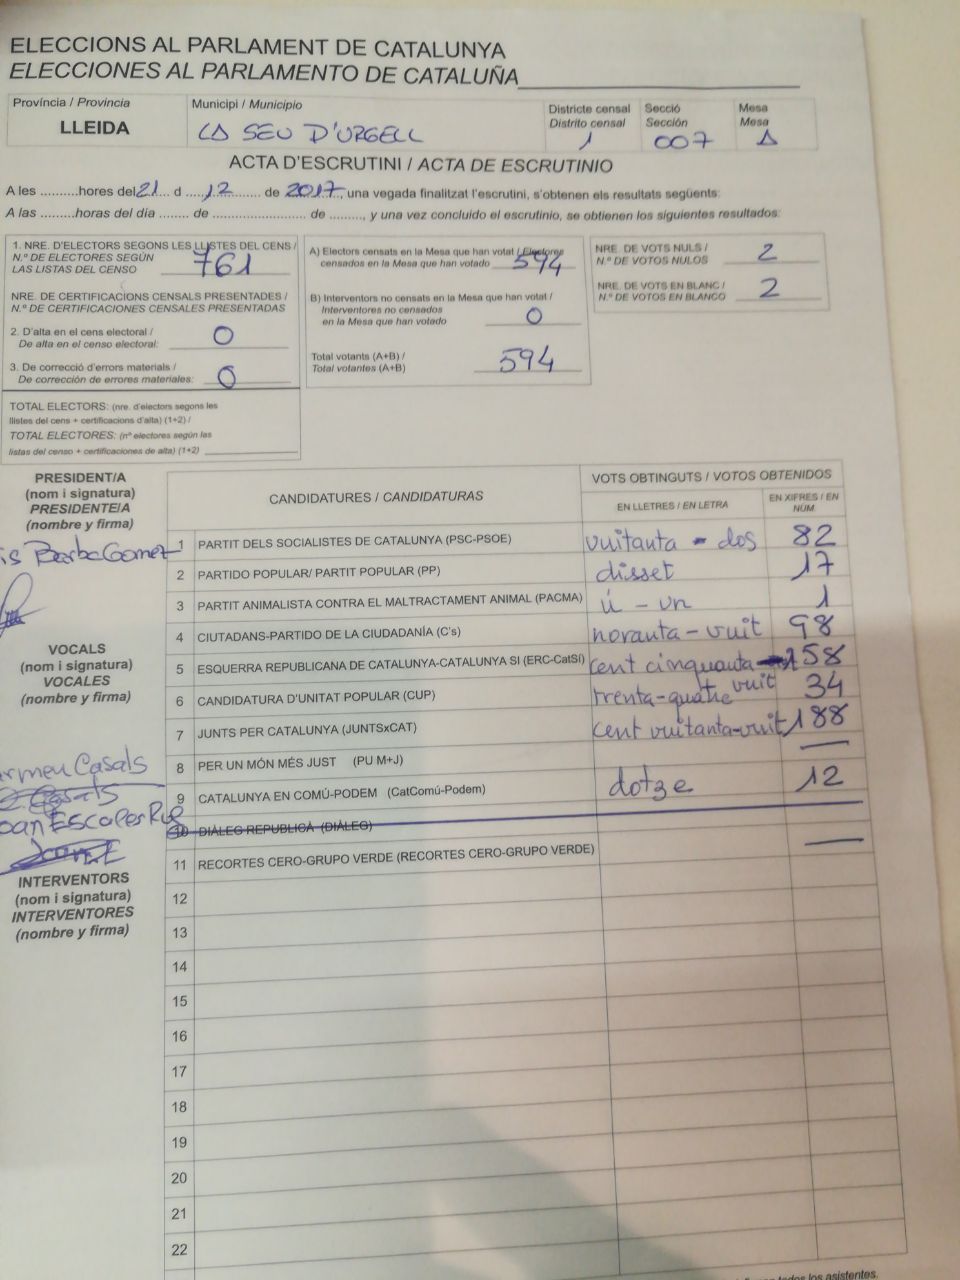 ELECCIONS AL PARLAMENT DE CATALUNYA
ELECCIONES AL PARLAMENTO DE CATALUÑA
Província / Provincia
LLEIDA
Municipi / Municipio
LA SEU D'URGELL
Districte censal
Distrito censal
1
Secció
Sección
007
Mesa
Mesa
A
ACTA D'ESCRUTINI / ACTA DE ESCRUTINIO
A les ..........hores del 21 d ..... 12 ........ de 2017, una vegada finalitzat l'escrutini, s'obtenen els resultats següents:
A las .........horas del día ........ de ............................ de ........., y una vez concluido el escrutinio, se obtienen los siguientes resultados:
1. NRE. D'ELECTORS SEGONS LES LLISTES DEL CENS /
N.º DE ELECTORES SEGÚN
LAS LISTAS DEL CENSO 761
NRE. DE CERTIFICACIONS CENSALS PRESENTADES /
N.º DE CERTIFICACIONES CENSALES PRESENTADAS
2. D'alta en el cens electoral /
De alta en el censo electoral: 0
3. De correcció d'errors materials /
De corrección de errores materiales: 0
TOTAL ELECTORS: (nre. d'electors segons les
llistes del cens + certificacions d'alta) (1+2) /
TOTAL ELECTORES: (nº electores según las
listas del censo + certificaciones de alta) (1+2)
A) Electors censats en la Mesa que han votat / Electores
censados en la Mesa que han votado 594
B) Interventors no censats en la Mesa que han votat /
Interventores no censados
en la Mesa que han votado 0
Total votants (A+B) /
Total votantes (A+B) 594
NRE. DE VOTS NULS /
N.º DE VOTOS NULOS 2
NRE. DE VOTS EN BLANC /
N.º DE VOTOS EN BLANCO 2
PRESIDENT/A
(nom i signatura)
PRESIDENTE/A
(nombre y firma)
is Barba Gomez
VOCALS
(nom i signatura)
VOCALES
(nombre y firma)
armen Casals
Casals
oan Escoles Rue
INTERVENTORS
(nom i signatura)
INTERVENTORES
(nombre y firma)
CANDIDATURES / CANDIDATURAS
VOTS OBTINGUTS / VOTOS OBTENIDOS
EN LLETRES / EN LETRA
EN XIFRES / EN
NÚM.
1 PARTIT DELS SOCIALISTES DE CATALUNYA (PSC-PSOE) vuitanta - dos 82
2 PARTIDO POPULAR/ PARTIT POPULAR (PP) disset 17
3 PARTIT ANIMALISTA CONTRA EL MALTRACTAMENT ANIMAL (PACMA) ú - un 1
4 CIUTADANS-PARTIDO DE LA CIUDADANÍA (C's) noranta - vuit 98
5 ESQUERRA REPUBLICANA DE CATALUNYA-CATALUNYA SI (ERC-CatSí) cent cinquanta- vuit 158
6 CANDIDATURA D'UNITAT POPULAR (CUP) trenta-quatre 34
7 JUNTS PER CATALUNYA (JUNTSxCAT) cent vuitanta-vuit 188
8 PER UN MÓN MÉS JUST (PU M+J) —
9 CATALUNYA EN COMÚ-PODEM (CatComú-Podem) dotze 12
10 DIÀLEG REPUBLICÀ (DIÀLEG)
11 RECORTES CERO-GRUPO VERDE (RECORTES CERO-GRUPO VERDE) —
12
13
14
15
16
17
18
19
20
21
22
todos los asistentes.